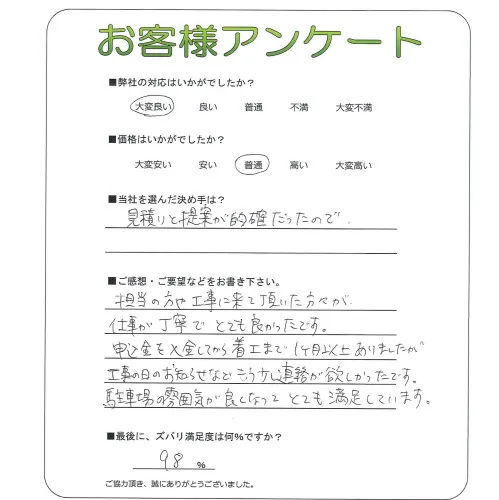 お客様アンケート
■弊社の対応はいかがでしたか?
大変良い 良い 普通 不満 大変不満
■価格はいかがでしたか?
大変安い 安い 普通 高い 大変高い
■当社を選んだ決め手は?
見積りと提案が的確だったので.
■ご感想・ご要望などをお書き下さい。
担当の方や工事に来て頂いた方々が
仕事が丁寧でとても良かったです。
申込金を入金してから着工まで1ヶ月以上ありましたが
工事の日のお知らせなどもう少し連絡が欲しかったです。
駐車場の雰囲気が良くなってとても満足しています。
■最後に、ズバリ満足度は何%ですか?
98 %
ご協力頂き、誠にありがとうございました。